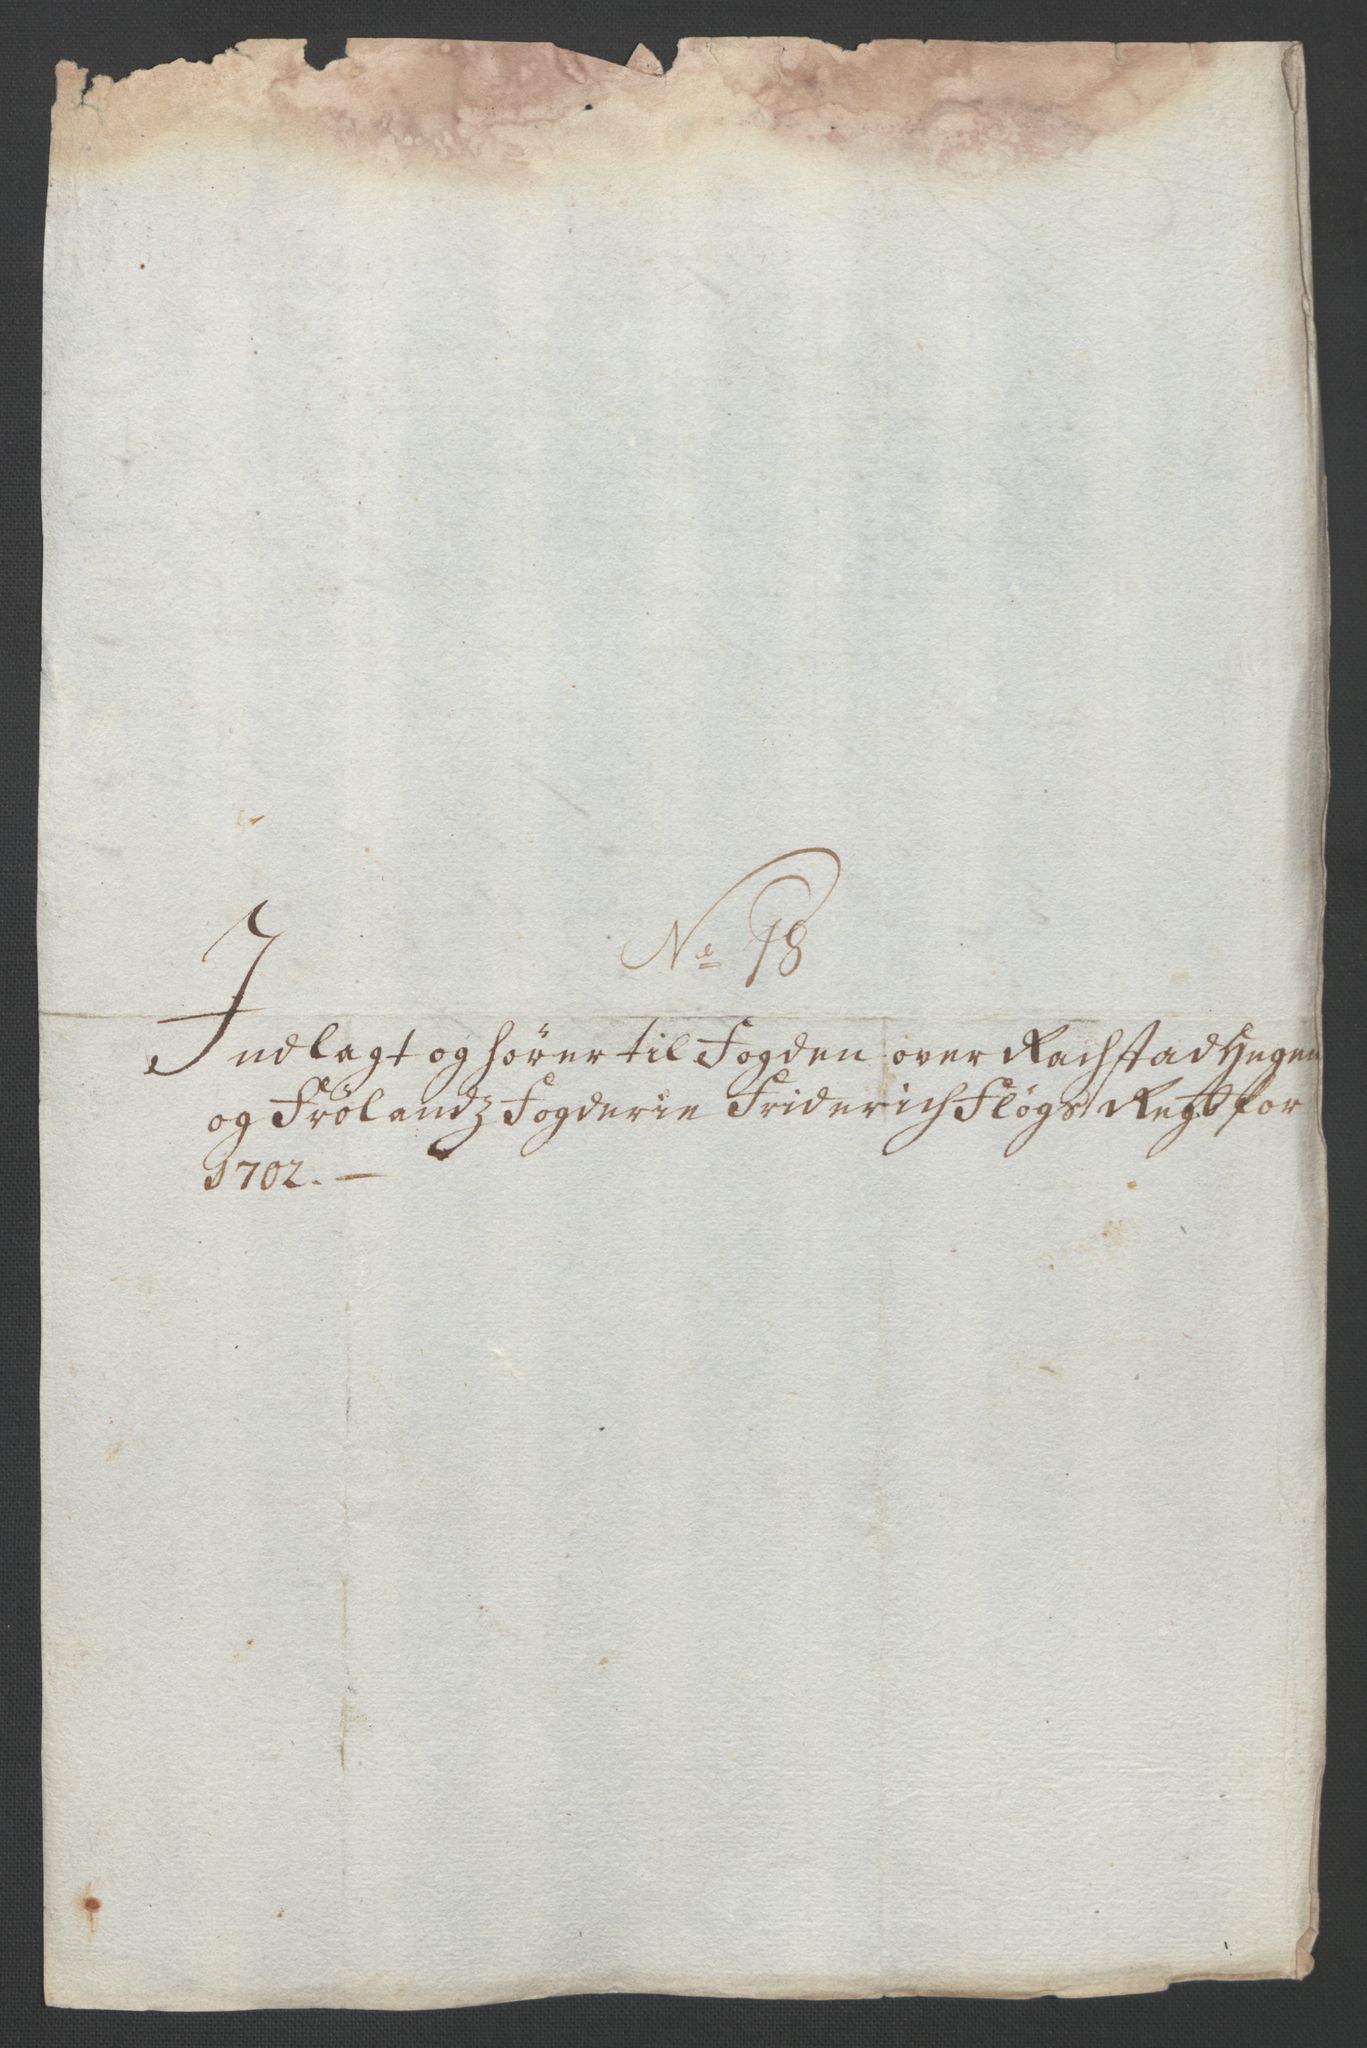 No 18
Indlagt og hörer til Fogden over Rachstad Hegen
og Frölandz Fogderie Friderich Flögs Regsk for
1702. —